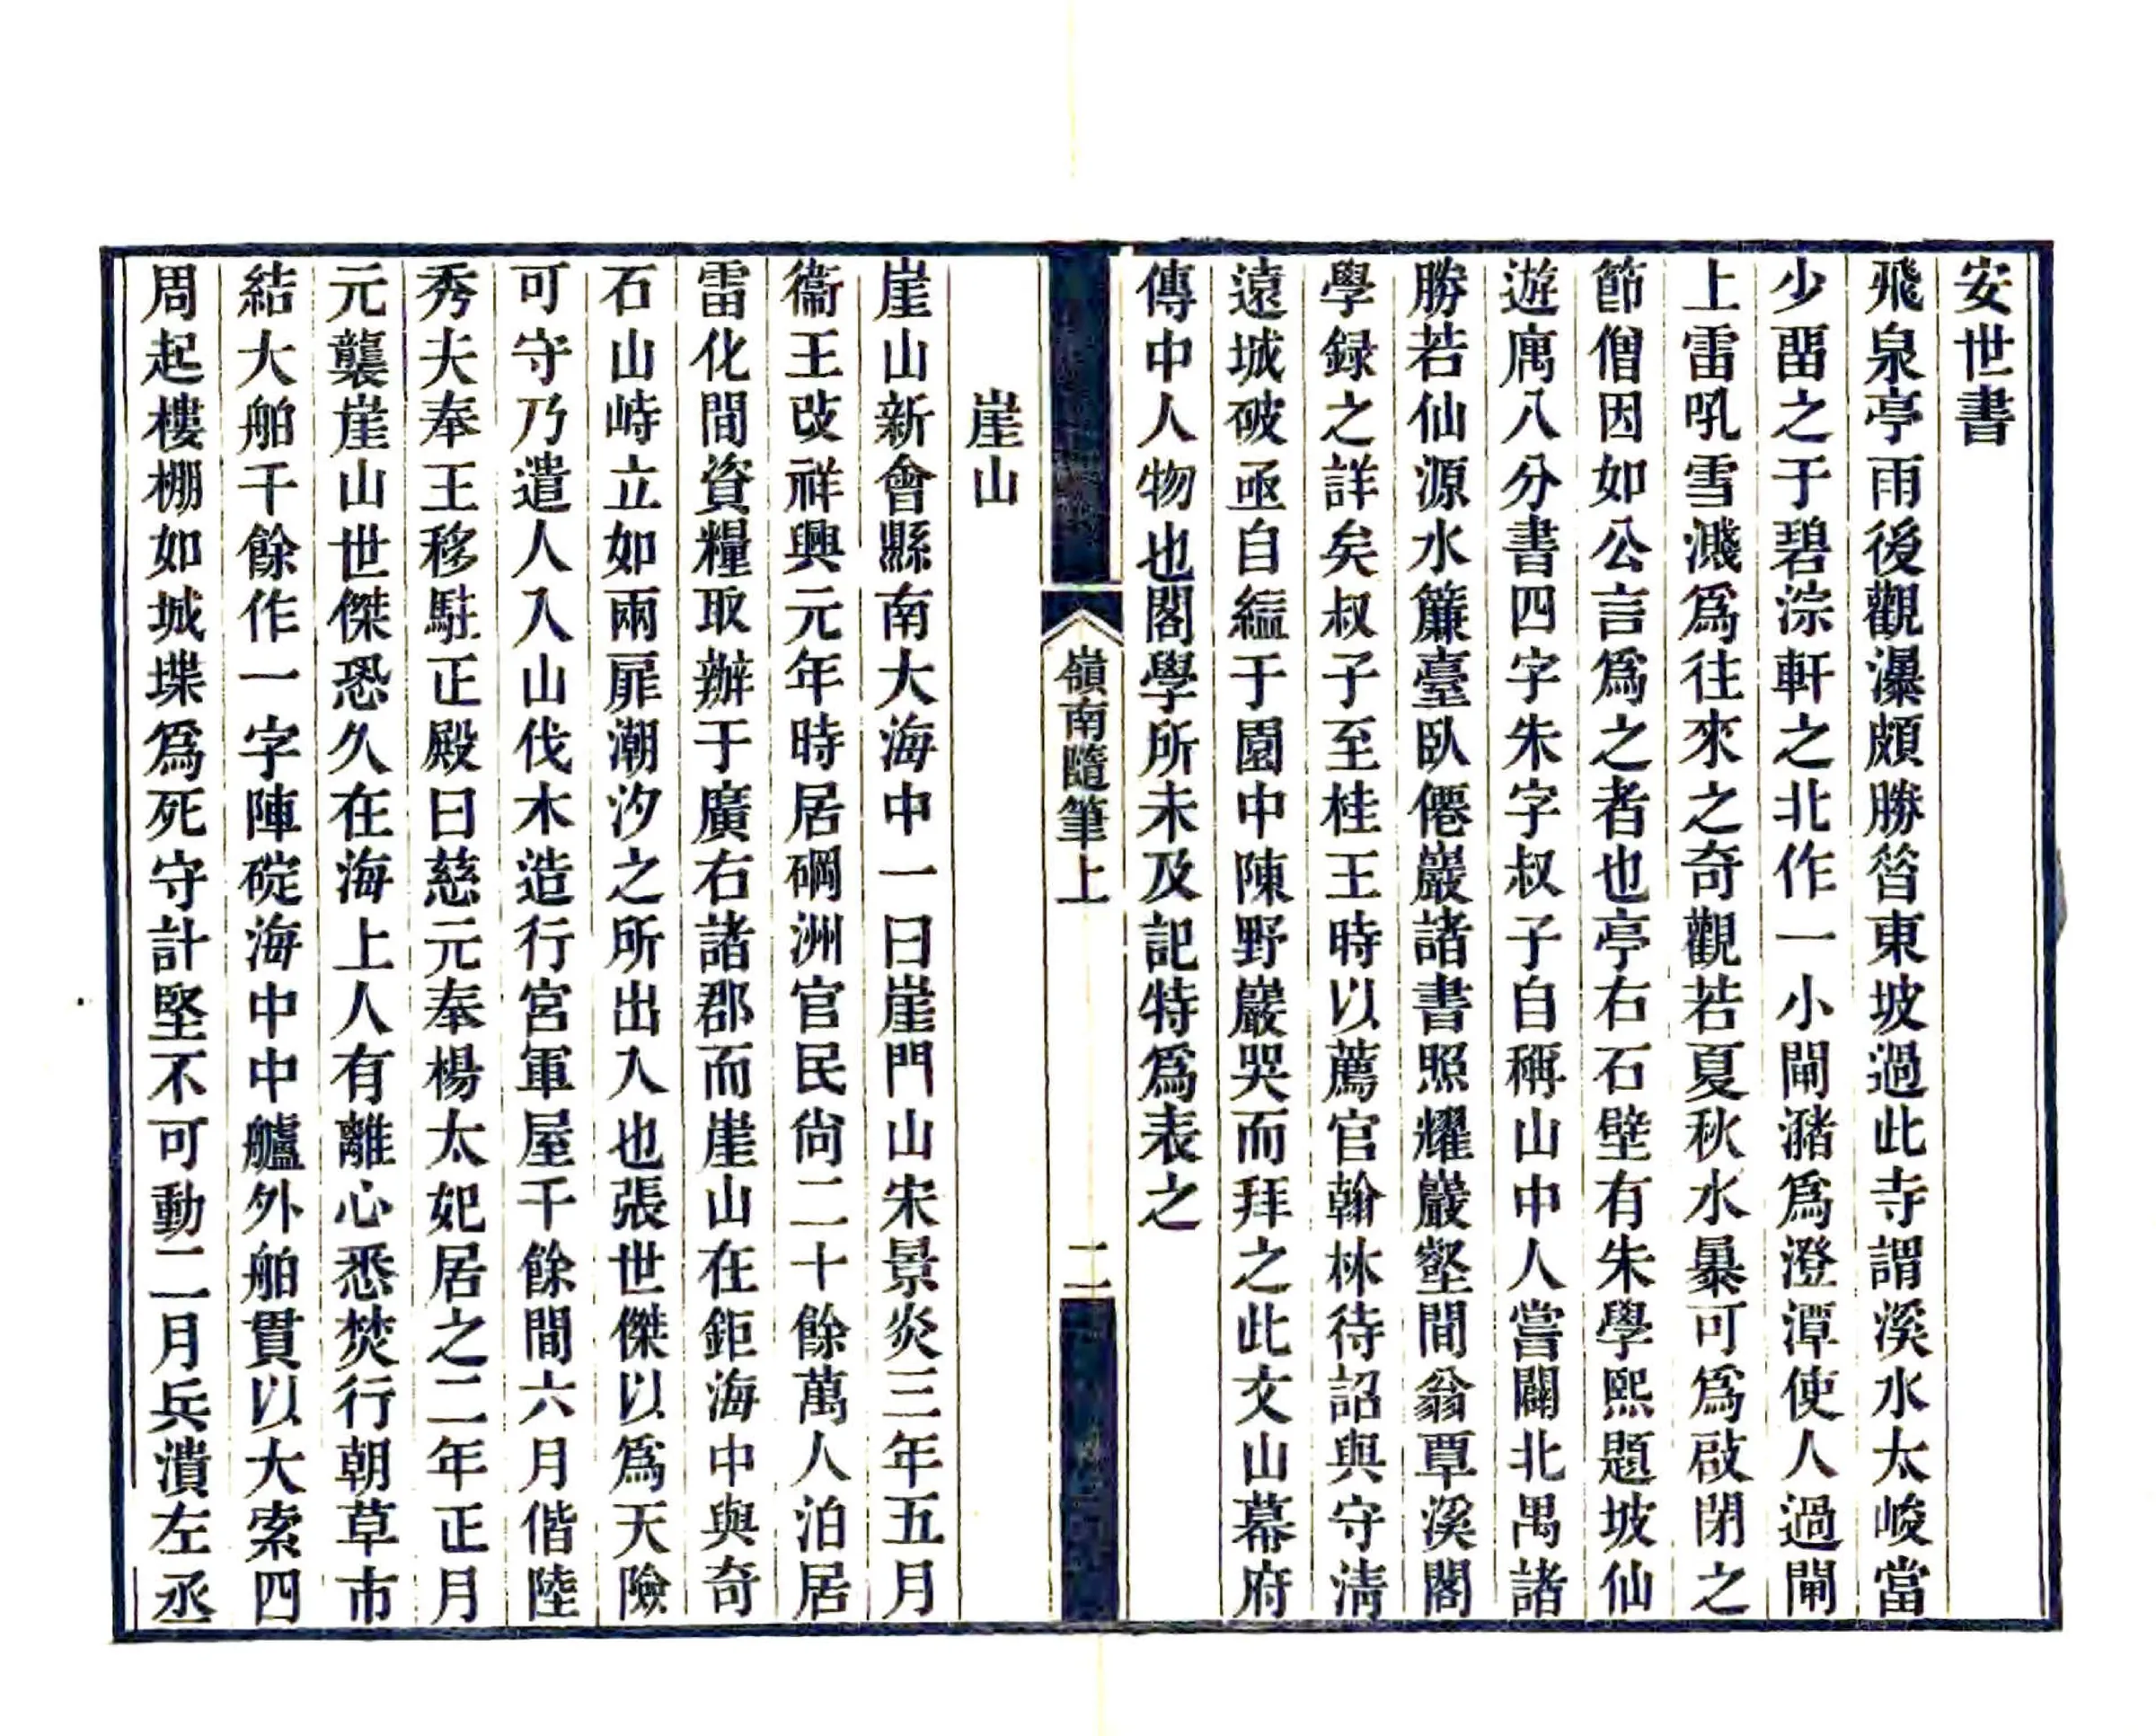 安世書
飛泉亭雨後觀瀑頗勝昝東坡過此寺謂溪水太峻當
少畱之于碧淙軒之北作一小閘瀦爲澄潭使人過閘
上雷吼雪濺爲往來之奇觀若夏秋水暴可爲啟閉之
節僧因如公言爲之者也亭右石壁有朱學熙題坡仙
遊㢏八分書四字朱字叔子自稱山中人嘗闢北禺諸
勝若仙源水簾臺臥僊巖諸書照耀巖壑間翁覃溪閣
學録之詳矣叔子至桂王時以薦官翰林待詔與守淸
遠城破亟自縊于園中陳野巖哭而拜之此文山幕府
傳中人物也閣學所未及記特爲表之
嶺南隨筆上
二
崖山
崖山新會縣南大海中一曰崖門山宋景炎三年五月
衞王改祥興元年時居碙洲官民尙二十餘萬人泊居
雷化間資糧取辦于廣右諸郡而崖山在鉅海中與奇
石山峙立如兩扉潮汐之所出入也張世傑以爲天險
可守乃遣人入山伐木造行宮軍屋千餘間六月偕陸
秀夫奉王移駐正殿曰慈元奉楊太妃居之二年正月
元襲崖山世傑恐久在海上人有離心悉焚行朝草市
結大舶千餘作一字陣碇海中中艫外舶貫以大索四
周起樓棚如城堞爲死守計堅不可動二月兵潰左丞